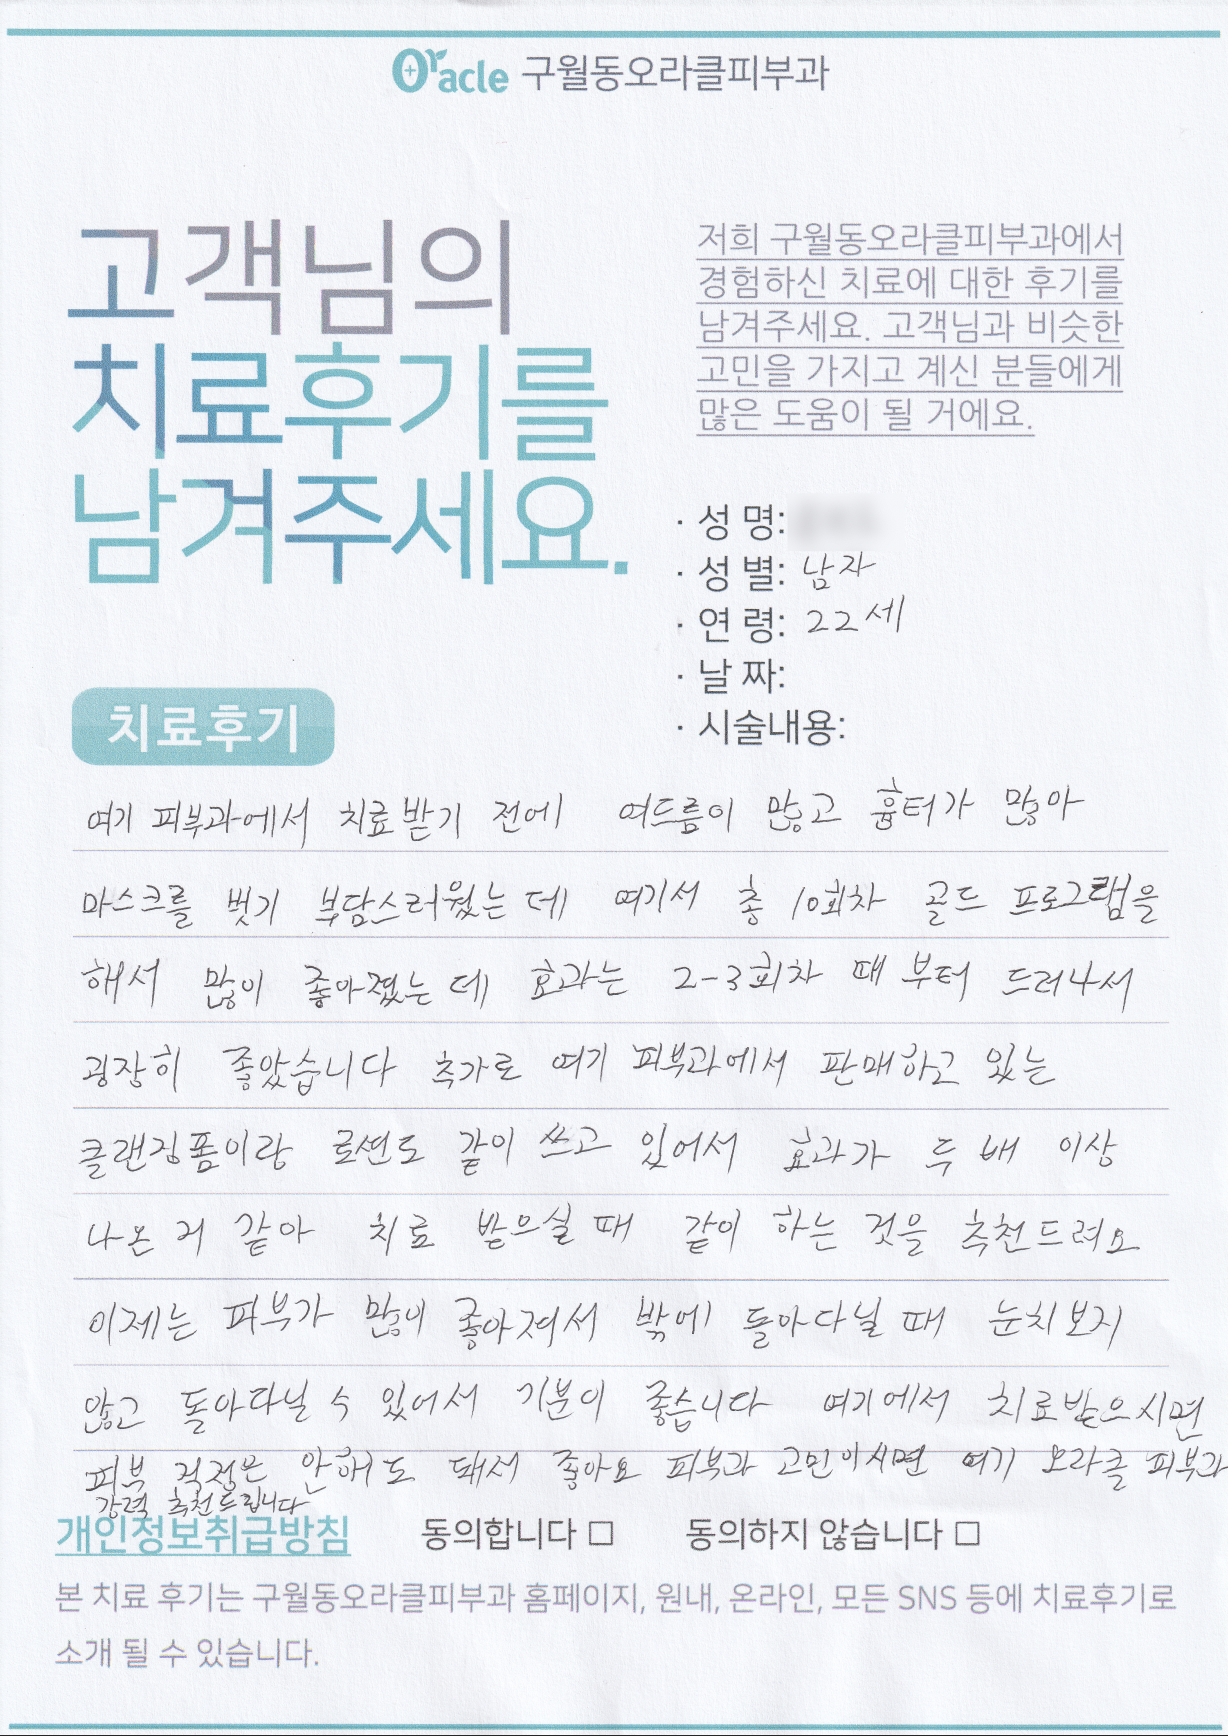 Oracle 구월동오라클피부과
고객님의
치료후기를
남겨주세요.
저희 구월동오라클피부과에서
경험하신 치료에 대한 후기를
남겨주세요. 고객님과 비슷한
고민을 가지고 계신 분들에게
많은 도움이 될 거에요.
· 성 명:
· 성 별: 남자
· 연 령: 22세
· 날 짜:
· 시술내용:
치료후기
여기 피부과에서 치료받기 전에 여드름이 많고 흉터가 많아
마스크를 벗기 부담스러웠는데 여기서 총 10회차 골드 프로그램을
해서 많이 좋아졌는데 효과는 2-3회차 때부터 드러나서
굉장히 좋았습니다 추가로 여기 피부과에서 판매하고 있는
클랜징폼이랑 로션도 같이 쓰고 있어서 효과가 두 배 이상
나온 거 같아 치료 받으실 때 같이 하는 것을 추천드려요
이제는 피부가 많이 좋아져서 밖에 돌아다닐 때 눈치보지
않고 돌아다닐 수 있어서 기분이 좋습니다 여기에서 치료받으시면
피부 걱정은 안해도 돼서 좋아요 피부과 고민이시면 여기 오라클 피부과
강력 추천드립니다
개인정보취급방침 동의합니다 □ 동의하지 않습니다 □
본 치료 후기는 구월동오라클피부과 홈페이지, 원내, 온라인, 모든 SNS 등에 치료후기로
소개 될 수 있습니다.